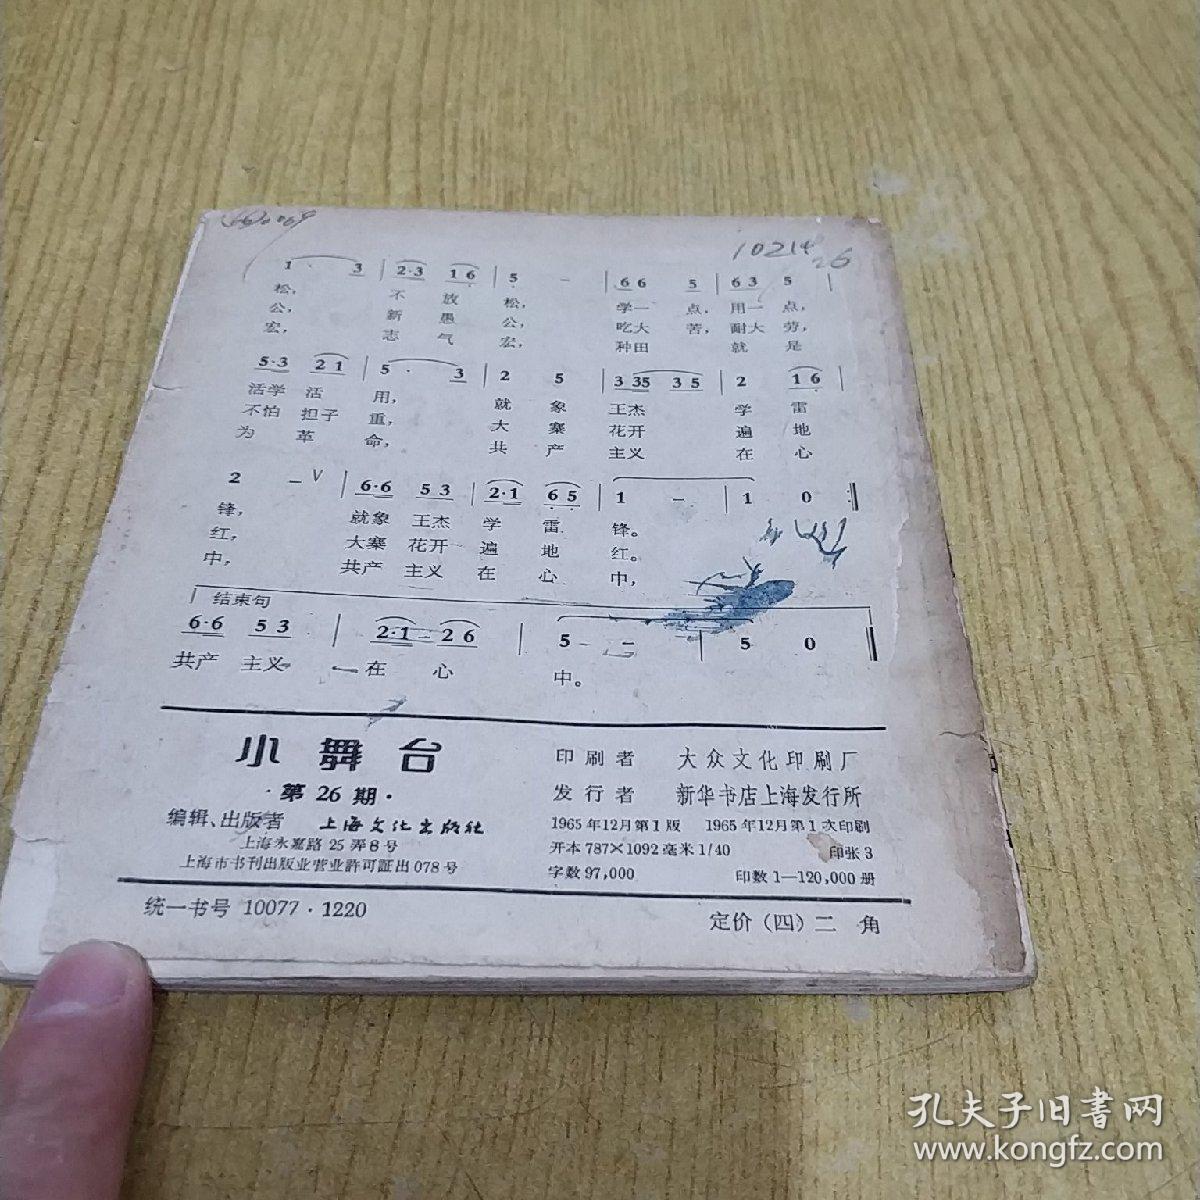 10214
26
1· 3 | 2·3 16 | 5 - | 66 5 | 63 5 |
松， 不 放 松， 学一 点，用一 点，
公， 新 愚 公， 吃大 苦，耐大 劳，
宏， 志 气 宏， 种田 就 是
5·3 21 | 5 · 3 | 2 5 | 3 35 35 | 2 16 |
活学 活 用， 就 象 王杰 学 雷
不怕 担子 重， 大 寨 花开 遍 地
为 革 命， 共 产 主义 在 心
2 - V | 6·6 53 | 2·1 65 | 1 - | 1 0 :‖
锋， 就象 王杰 学 雷 锋。
红， 大寨 花开 遍 地 红。
中， 共产 主义 在 心 中，
结束句
6·6 53 | 2·1 - 26 | 5 - - | 5 0 ‖
共产 主义 在 心 中。
小舞台
·第26期·
编辑、出版者 上海文化出版社
上海永嘉路25弄8号
上海市书刊出版业营业許可証出078号
印刷者 大众文化印刷厂
发行者 新华书店上海发行所
1965年12月第1版 1965年12月第1次印刷
开本787×1092毫米1/40 印张3
字数97,000 印数1—120,000册
统一书号 10077·1220
定价（四）二 角
孔夫子旧書网
www.kongfz.com